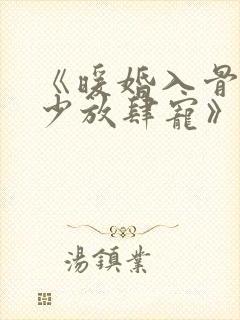 《暖婚入骨
少放肆宠》
湯鎮業